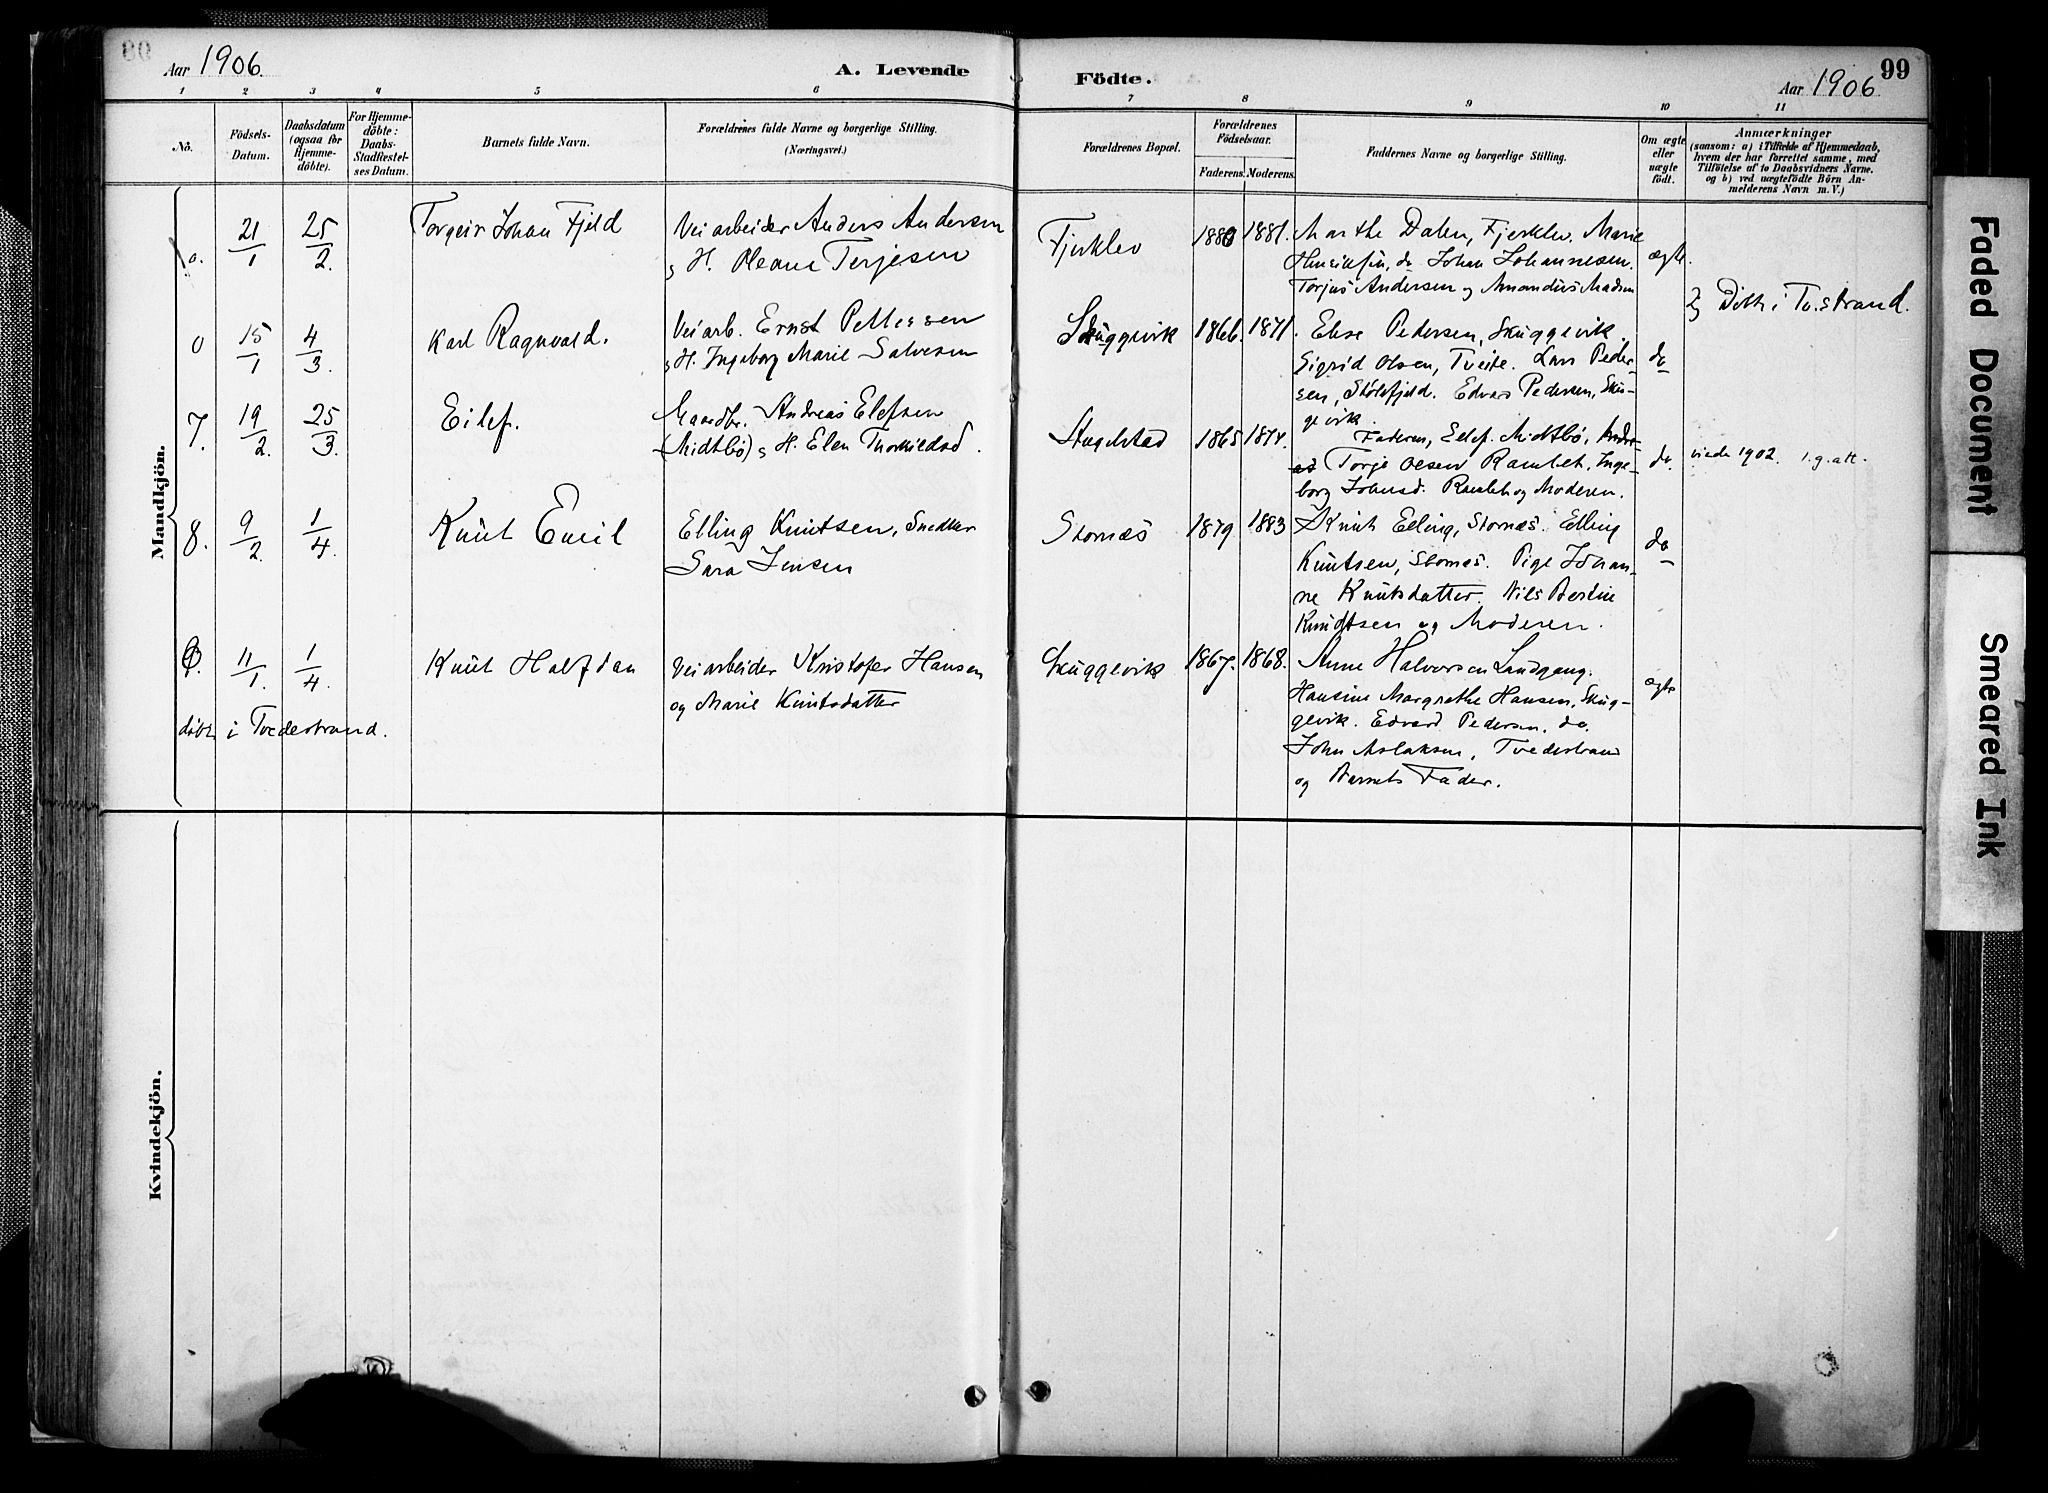 Aar 1906.
A. Levende
Födte.
99
Aar 1906.
1 2 3 4 5 6 7 8 9 10 11
No.
Födsels-
Datum.
Daabsdatum
(ogsaa for
Hjemme-
döbte).
For Hjemme-
döbte:
Daabs-
Stadfestel-
ses Datum.
Barnets fulde Navn.
Forældrenes fulde Navne og borgerlige Stilling.
(Næringsvei.)
Forældrenes Bopæl.
Forældrenes
Födselsaar.
Faderens. Moderens.
Faddernes Navne og borgerlige Stilling.
Om ægte
eller
uægte
födt.
Anmærkninger
(saasom: a) i Tilfælde af Hjemmedaab,
hvem der har forrettet samme, med
Tilföielse af to Daabsvidners Navne.
og b) ved uægtefödte Börn An-
melderens Navn m. V.)
Mandkjön.
21/1 25/2. Torgeir Johan Fjeld
Veiarbeider Anders Andersen
H. Oleane Terjesen
Fjerklev 1880 1881.
Marthe Dalen, Fjerklev. Marie
Henriksen, do Johan Johannesen.
Torjus Andersen og Amandus Madsen
ægte.
Döbt i Tv.strand.
0 15/1 4/3. Karl Ragnvald.
Veiarb. Ernst Pettersen
H. Ingeborg Marie Salvesen
Skuggevik 1866. 1871.
Elise Pedersen, Skuggevik.
Sigrid Olsen, Tveite. Lars Peder-
sen, Stölefjeld. Edvard Pedersen, Skug-
gevik.
do
7. 19/2. 25/3. Eilef.
Gaardbr. Andreas Elefsen
(Midtbö) H. Elen Thorkildsd.
1865 1874.
Faderen, Eilef Midtbö, Andre-
as Torje Olsen Ramlet, Inge-
borg Johnsd. Ramlet og Moderen.
do.
viede 1902. 1. g. att.
8. 9/2. 1/4. Knut Emil
Elling Knutsen, Snedker
Sara Jensen
Stornæs 1879. 1883
Knut Elling, Stornæs. Elling
Knutsen, Stornæs. Pige Johan-
ne Knutsdatter. Nils Bertin
Knudtsen og Moderen.
do
11/1. 1/4. Knut Halfdan
Veiarbeider Kristofer Hansen
og Marie Knutsdatter
Skuggevik 1867. 1868.
Anne Halvorsen Landgang.
Hansine Margrethe Hansen, Skug-
gevik. Edvard Pedersen, do.
John Aslaksen, Tvedestrand
og Barnets Fader.
ægte
döbt i Tvedestrand.
Kvindekjön.
Faded Document
Smeared Ink